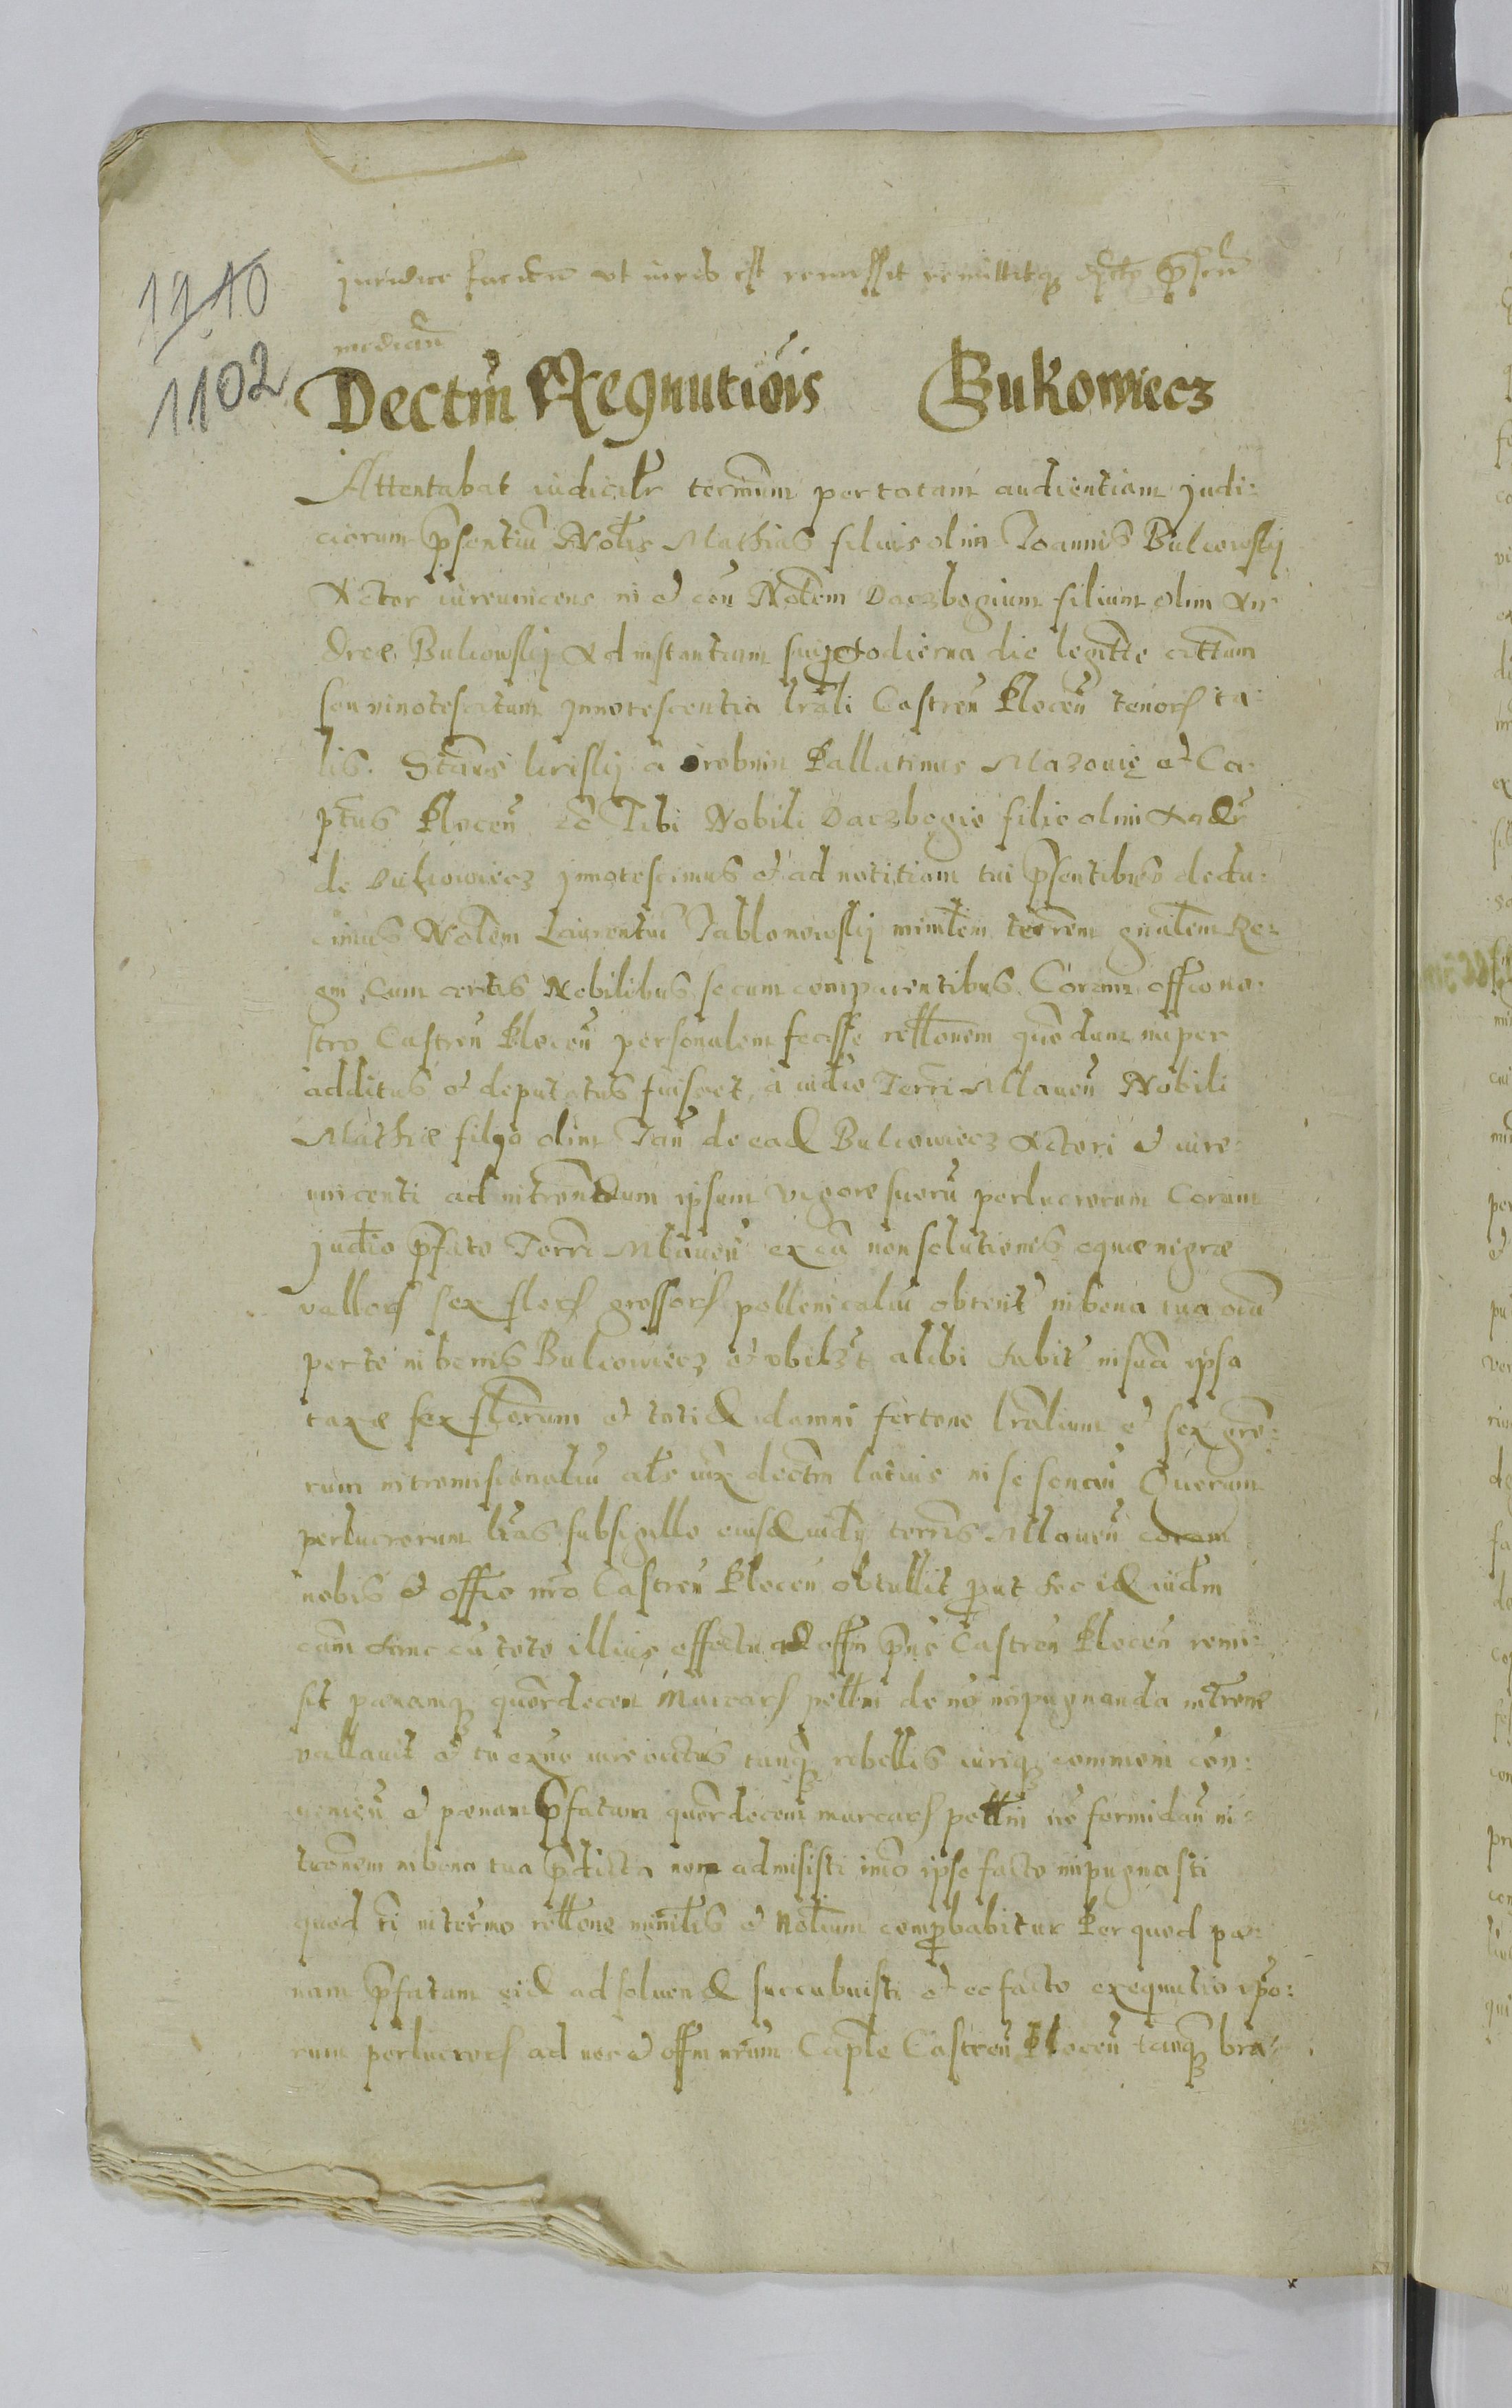 1210
1102
juridice faciend ut iuris est remissit remittitq decto pnscn
median
Dectm Exegnutiois Bukowiecz
Attentabat iudicialr termum per totam audientiam judi:
ciorum pnsentiu Nolis Mathias filius olim Joannis Bukowskij
Actor iurevincens in et con Nolem Daczbogium filium olim An
dreæ Bukowskij Ad instantiam sui hodierna die legitte cittum
seu innotescitum Jnnotescentia lrali Castren Plocen tenoris ta:
lis. Staus Krissky à Drobnin Pallatinus Mazovię et Ca:
ptus Plocen etc Tibi Nobili Daczbogio filio olim Andr
de Bukowiecz Jnnotescimus et ad notitiam tui pnsentibus dedu:
cimus Nolem Laurentiu Jablonowskij minlem terrem gnalem Re:
gni, Cum certis Nobilibus secum comparentibus Coram offico no:
stro Castren Plocen personalem fecisse rellonem quo dum nuper
additus et deputatus fuisset, à iudio Terri Mlaven Nobili
Mathiæ filyo olim Jan de ead Bukowiecz Actori et iure
vincenti ad intromdum ipsum vigore suoru perlucrorum Coram
judio pfato Terri Mlaven ex ca non solutionis equæ nigræ
valloris sex floris grossoris pollonicaliu obtent in bona tua oia
per te in bonis Bukowiecz et ubilzt alibi habit in sua ipsa
taxa sex florum et totid damni fertone lralium et sex gro:
rum intromissionaliu als iux dectm latius in se sonan Quorum
perlucrorum lras sub sigillo eiusd iudy terris Mlaven coram
nobis et offico nro Castren Plocen obtullit prout hoc id iudm
cam hanc cu toto illius effectu ad offm pns Castren Plocen remi:
sit pænamq quordecem Marcaris pollm de no inpugnanda introne
vallavit et tu exns iure victus tanq rebellis iuriq commoni con:
pænam pfatam quordecem marcaris pollm no formidan in:
tronem in bona tua pdicta non admisisti imo ipso facto inpugnasti
quod ti in termo rellone minlis et Nolium comprobabitur Per quod pæ:
nam pfatam eid ad solven d succubuisti et eo facto exequutio ipso:
rum perlucroris ad nos et offm nrum Caple Castren Plocen tanq bra: